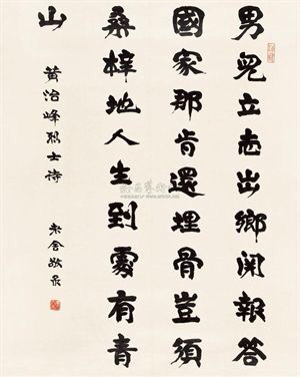 男兒立志出鄉関報答
國家那肯還埋骨豈須
桑梓地人生到處有青
山
黄治峰烈士詩
敬录